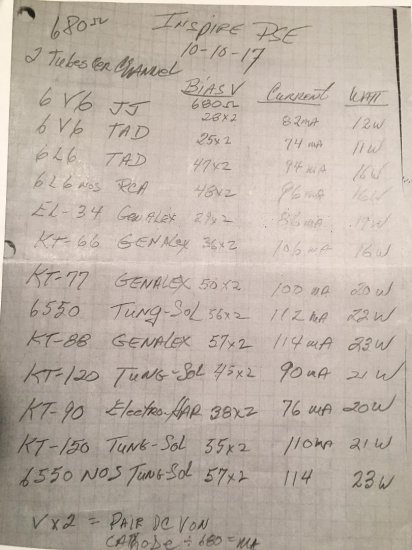 680Ω Inspire PSE
10-10-17
2 Tubes Per Channel
Bias V Current Watt
680Ω
6V6 JJ 28x2 82mA 12W
6V6 TAD 25x2 74mA 11W
6L6 TAD 47x2 94mA 16W
6L6 NOS RCA 48x2 96mA 16W
EL-34 Genalex 29x2 86mA
KT-66 Genalex 36x2 106mA 16W
KT-77 Genalex 50x2 100mA 20W
6550 Tung-Sol 56x2 112mA 22W
KT-88 Genalex 57x2 114mA 23W
KT-120 Tung-Sol 45x2 90mA 21W
KT-90 Electro-Har 38x2 76mA 20W
KT-150 Tung-Sol 55x2 110mA 21W
6550 NOS TungSol 57x2 114 23W
V x 2 = Pair DC V on
Cathode ÷ 680 = mA